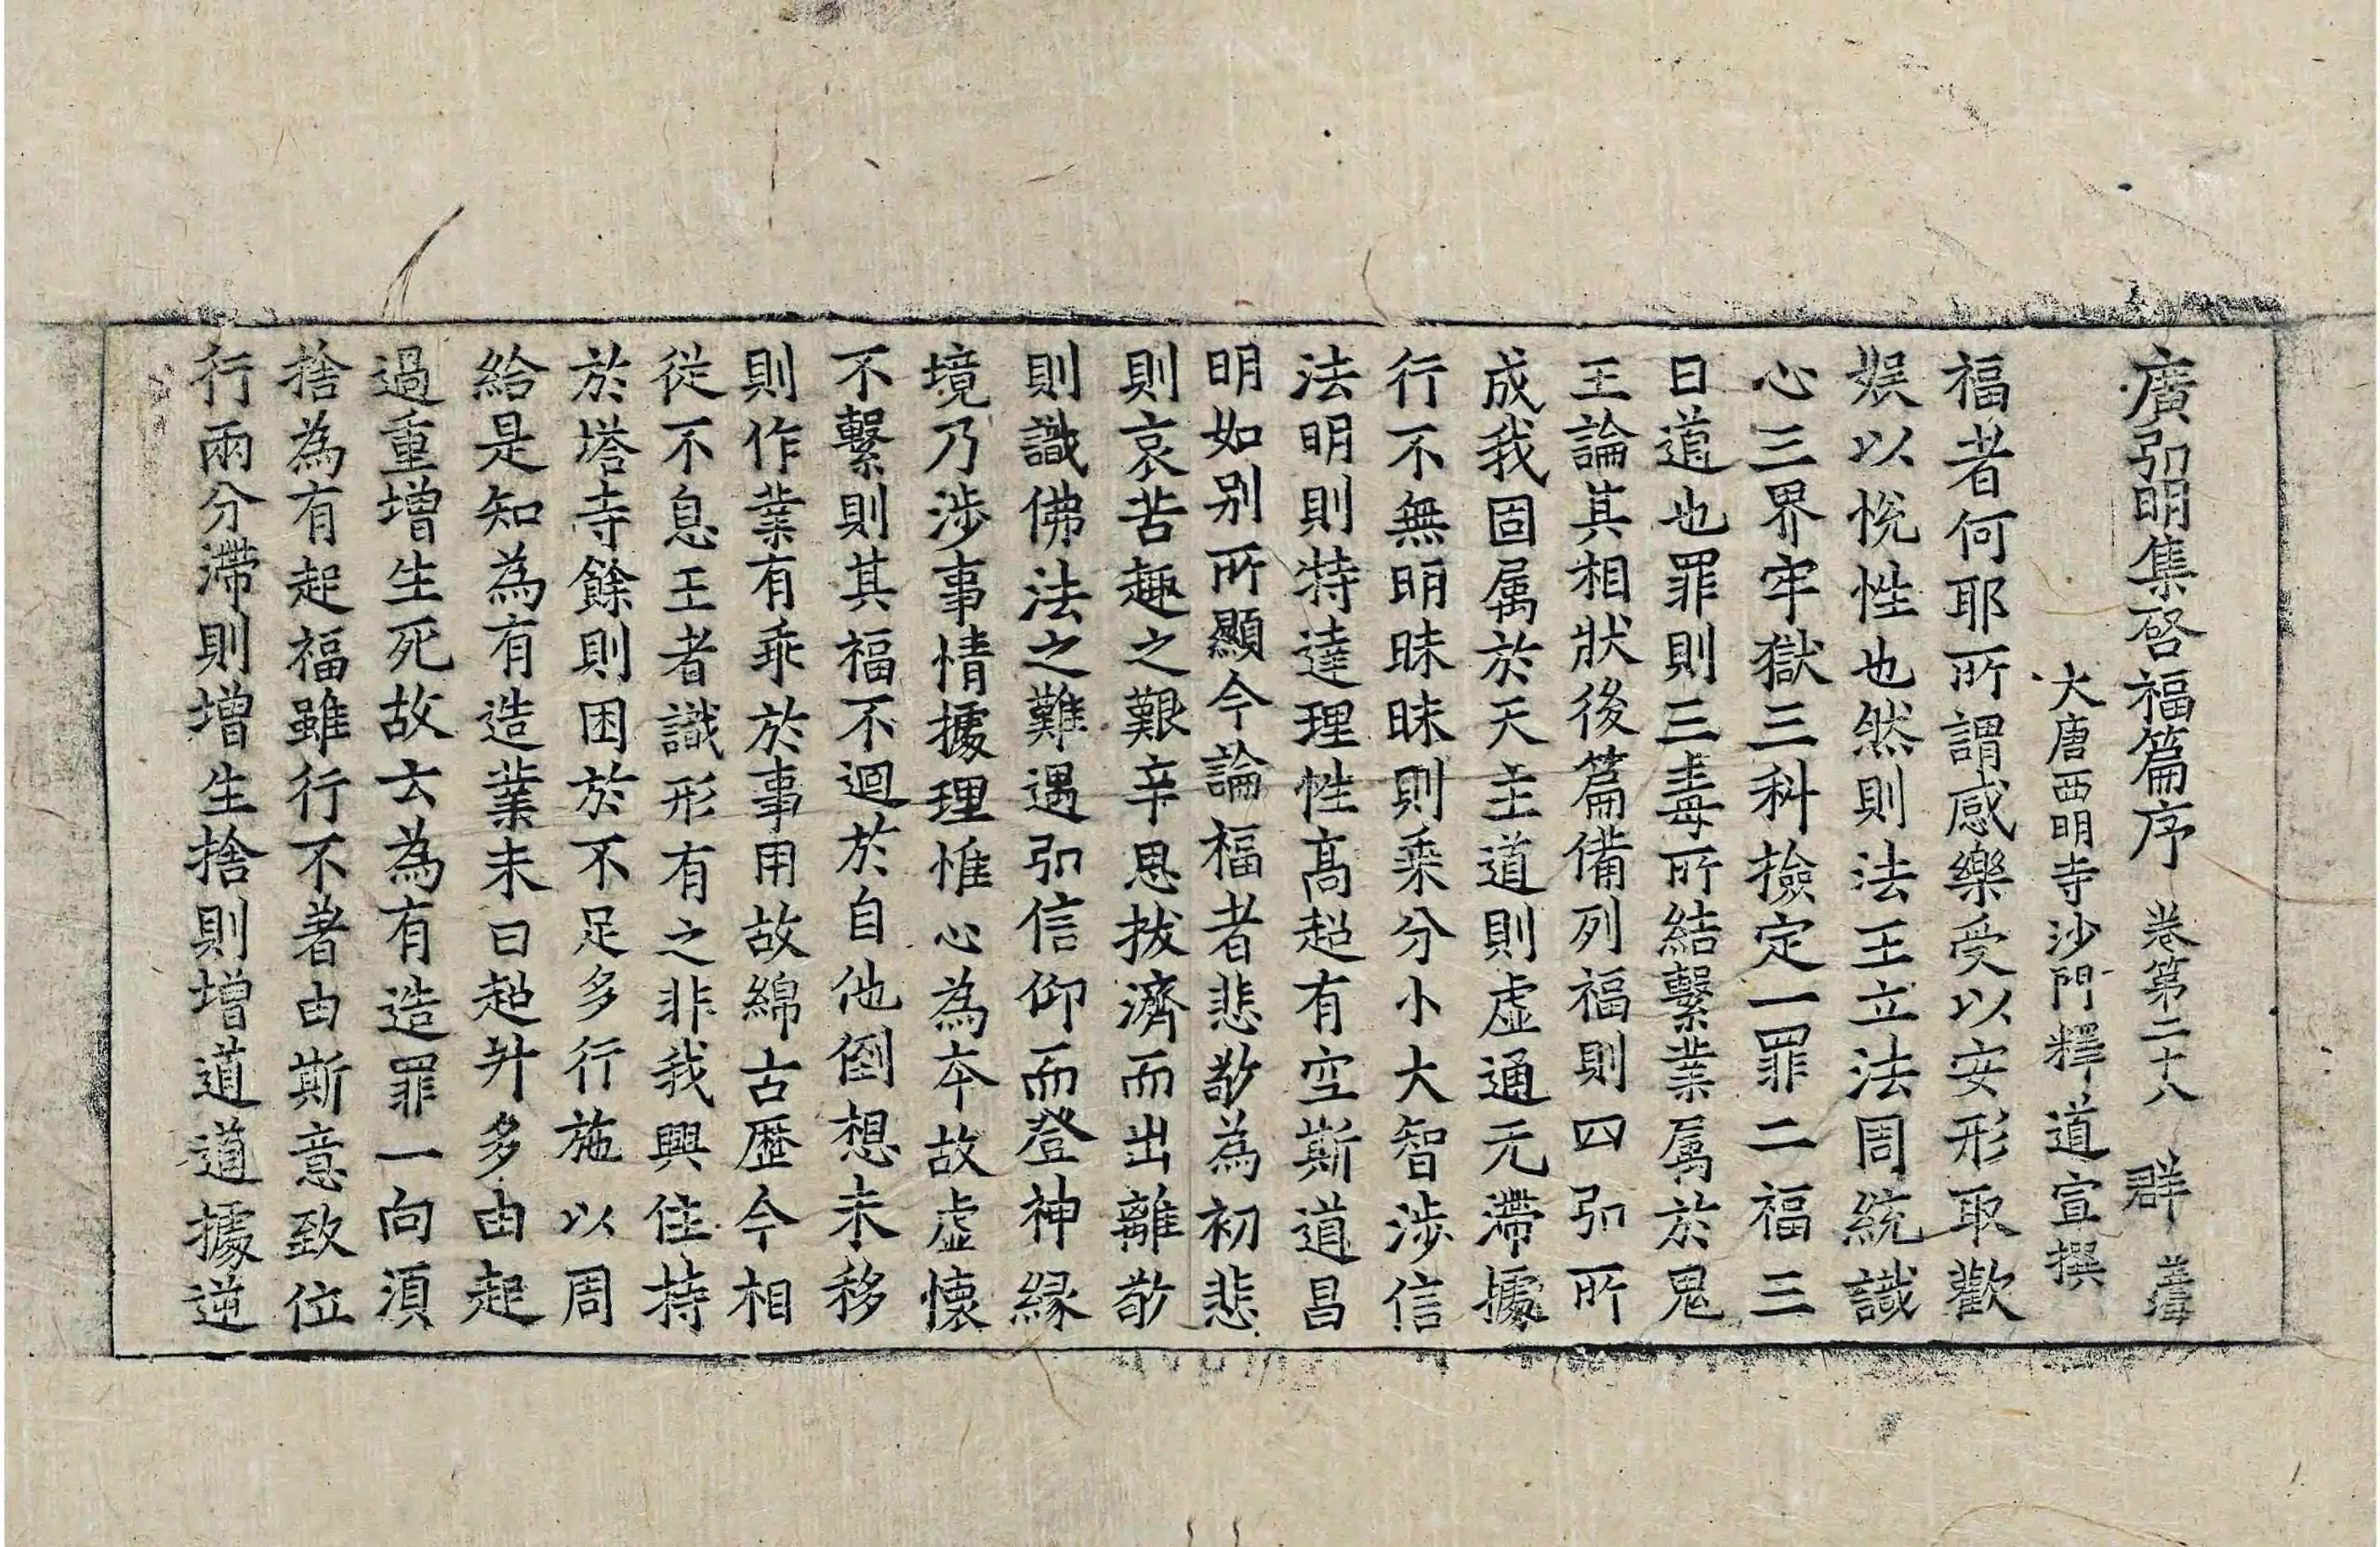 廣弘明集啓福篇序 卷第二十八 群
大唐西明寺沙門釋道宣撰
福者何耶所謂感樂受以安形取歡
娱以悅性也然則法王立法周統識
心三界牢獄三科撿定一罪二福三
曰道也罪則三毒所結繫業属於鬼
王論其相狀後篇備列福則四弘所
成我固属於天主道則虛通无滯據
行不無明昧昧則乘分小大智涉信
法明則特達理性髙超有空斯道昌
明如别所顯今論福者悲敬為初悲
則哀苦趣之艱辛思拔濟而出離敬
則識佛法之難遇弘信仰而登神縁
境乃涉事情據理惟心為本故虛懷
不繫則其福不迴於自他倒想未移
則作業有乖於事用故綿古歷今相
從不息王者識形有之非我興住持
於塔寺餘則困於不足多行施以周
給是知為有造業未曰超升多由起
過重增生死故云為有造罪一向須
捨為有起福雖行不著由斯意致位
行兩分滯則增生捨則增道道據逆